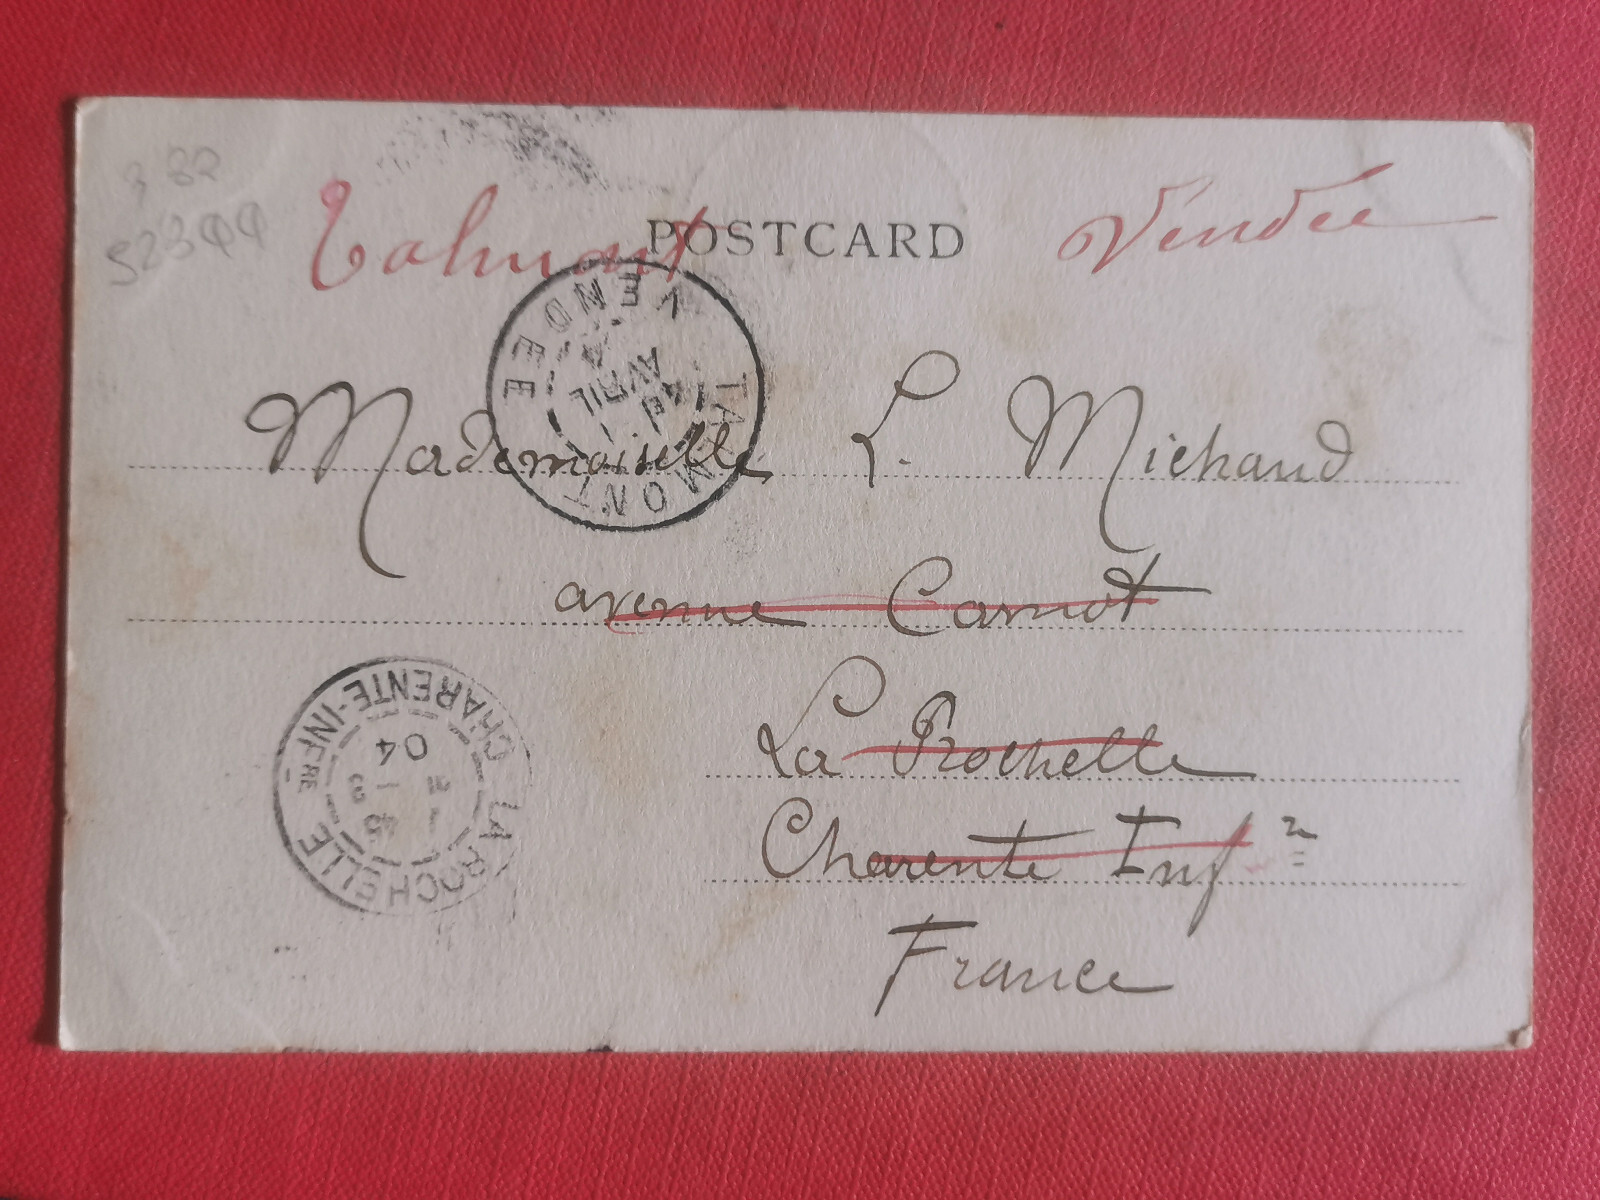 Talmont Vendée
POSTCARD
TALMONT
VENDEE
AVRIL
Mademoiselle L. Michaud
avenue Carnot
La Rochelle
Charente Infre
France
LA ROCHELLE
CHARENTE-INFRE
04